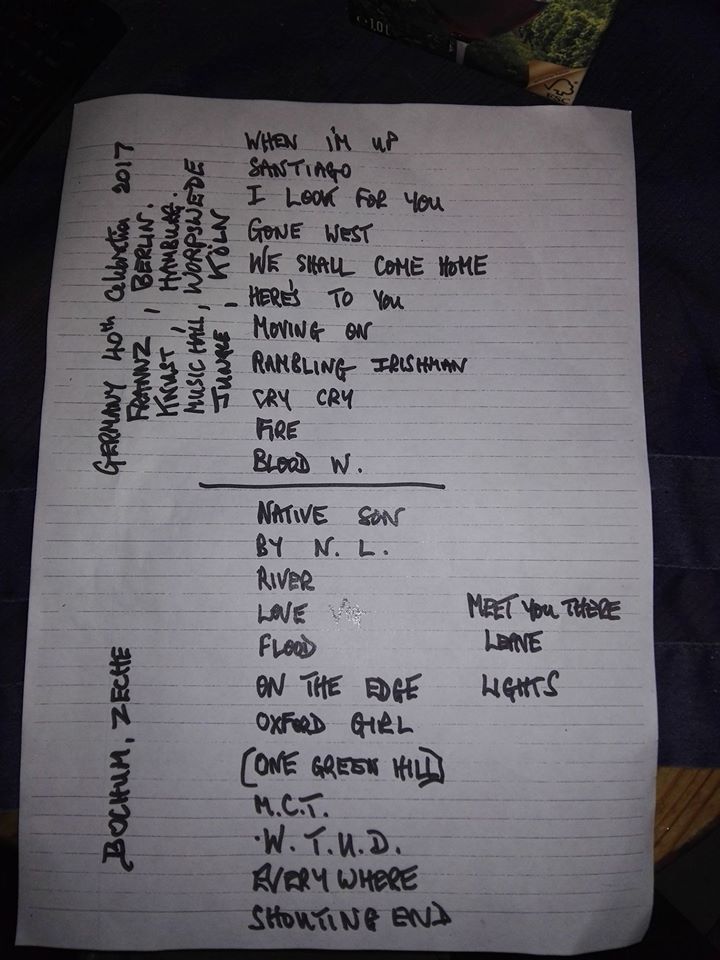 1.0 L
FSC
WHEN I'M UP
SANTIAGO
I LOOK FOR YOU
GONE WEST
WE SHALL COME HOME
HERE'S TO YOU
MOVING ON
RAMBLING IRISHMAN
CRY CRY
FIRE
BLOOD W.
NATIVE SON
BY N. L.
RIVER
LOVE
FLOOD
ON THE EDGE
OXFORD GIRL
(ONE GREEN HILL)
M.C.T.
W. T. U. D.
EVERYWHERE
SHOUTING END
MEET YOU THERE
LEAVE
LIGHTS
GERMANY 40th Celebration 2017
FRANNZ, BERLIN.
KNUST, HAMBURG.
MUSIC HALL, WORPSWEDE
JUNGLE, KÖLN
BOCHUM, ZECHE